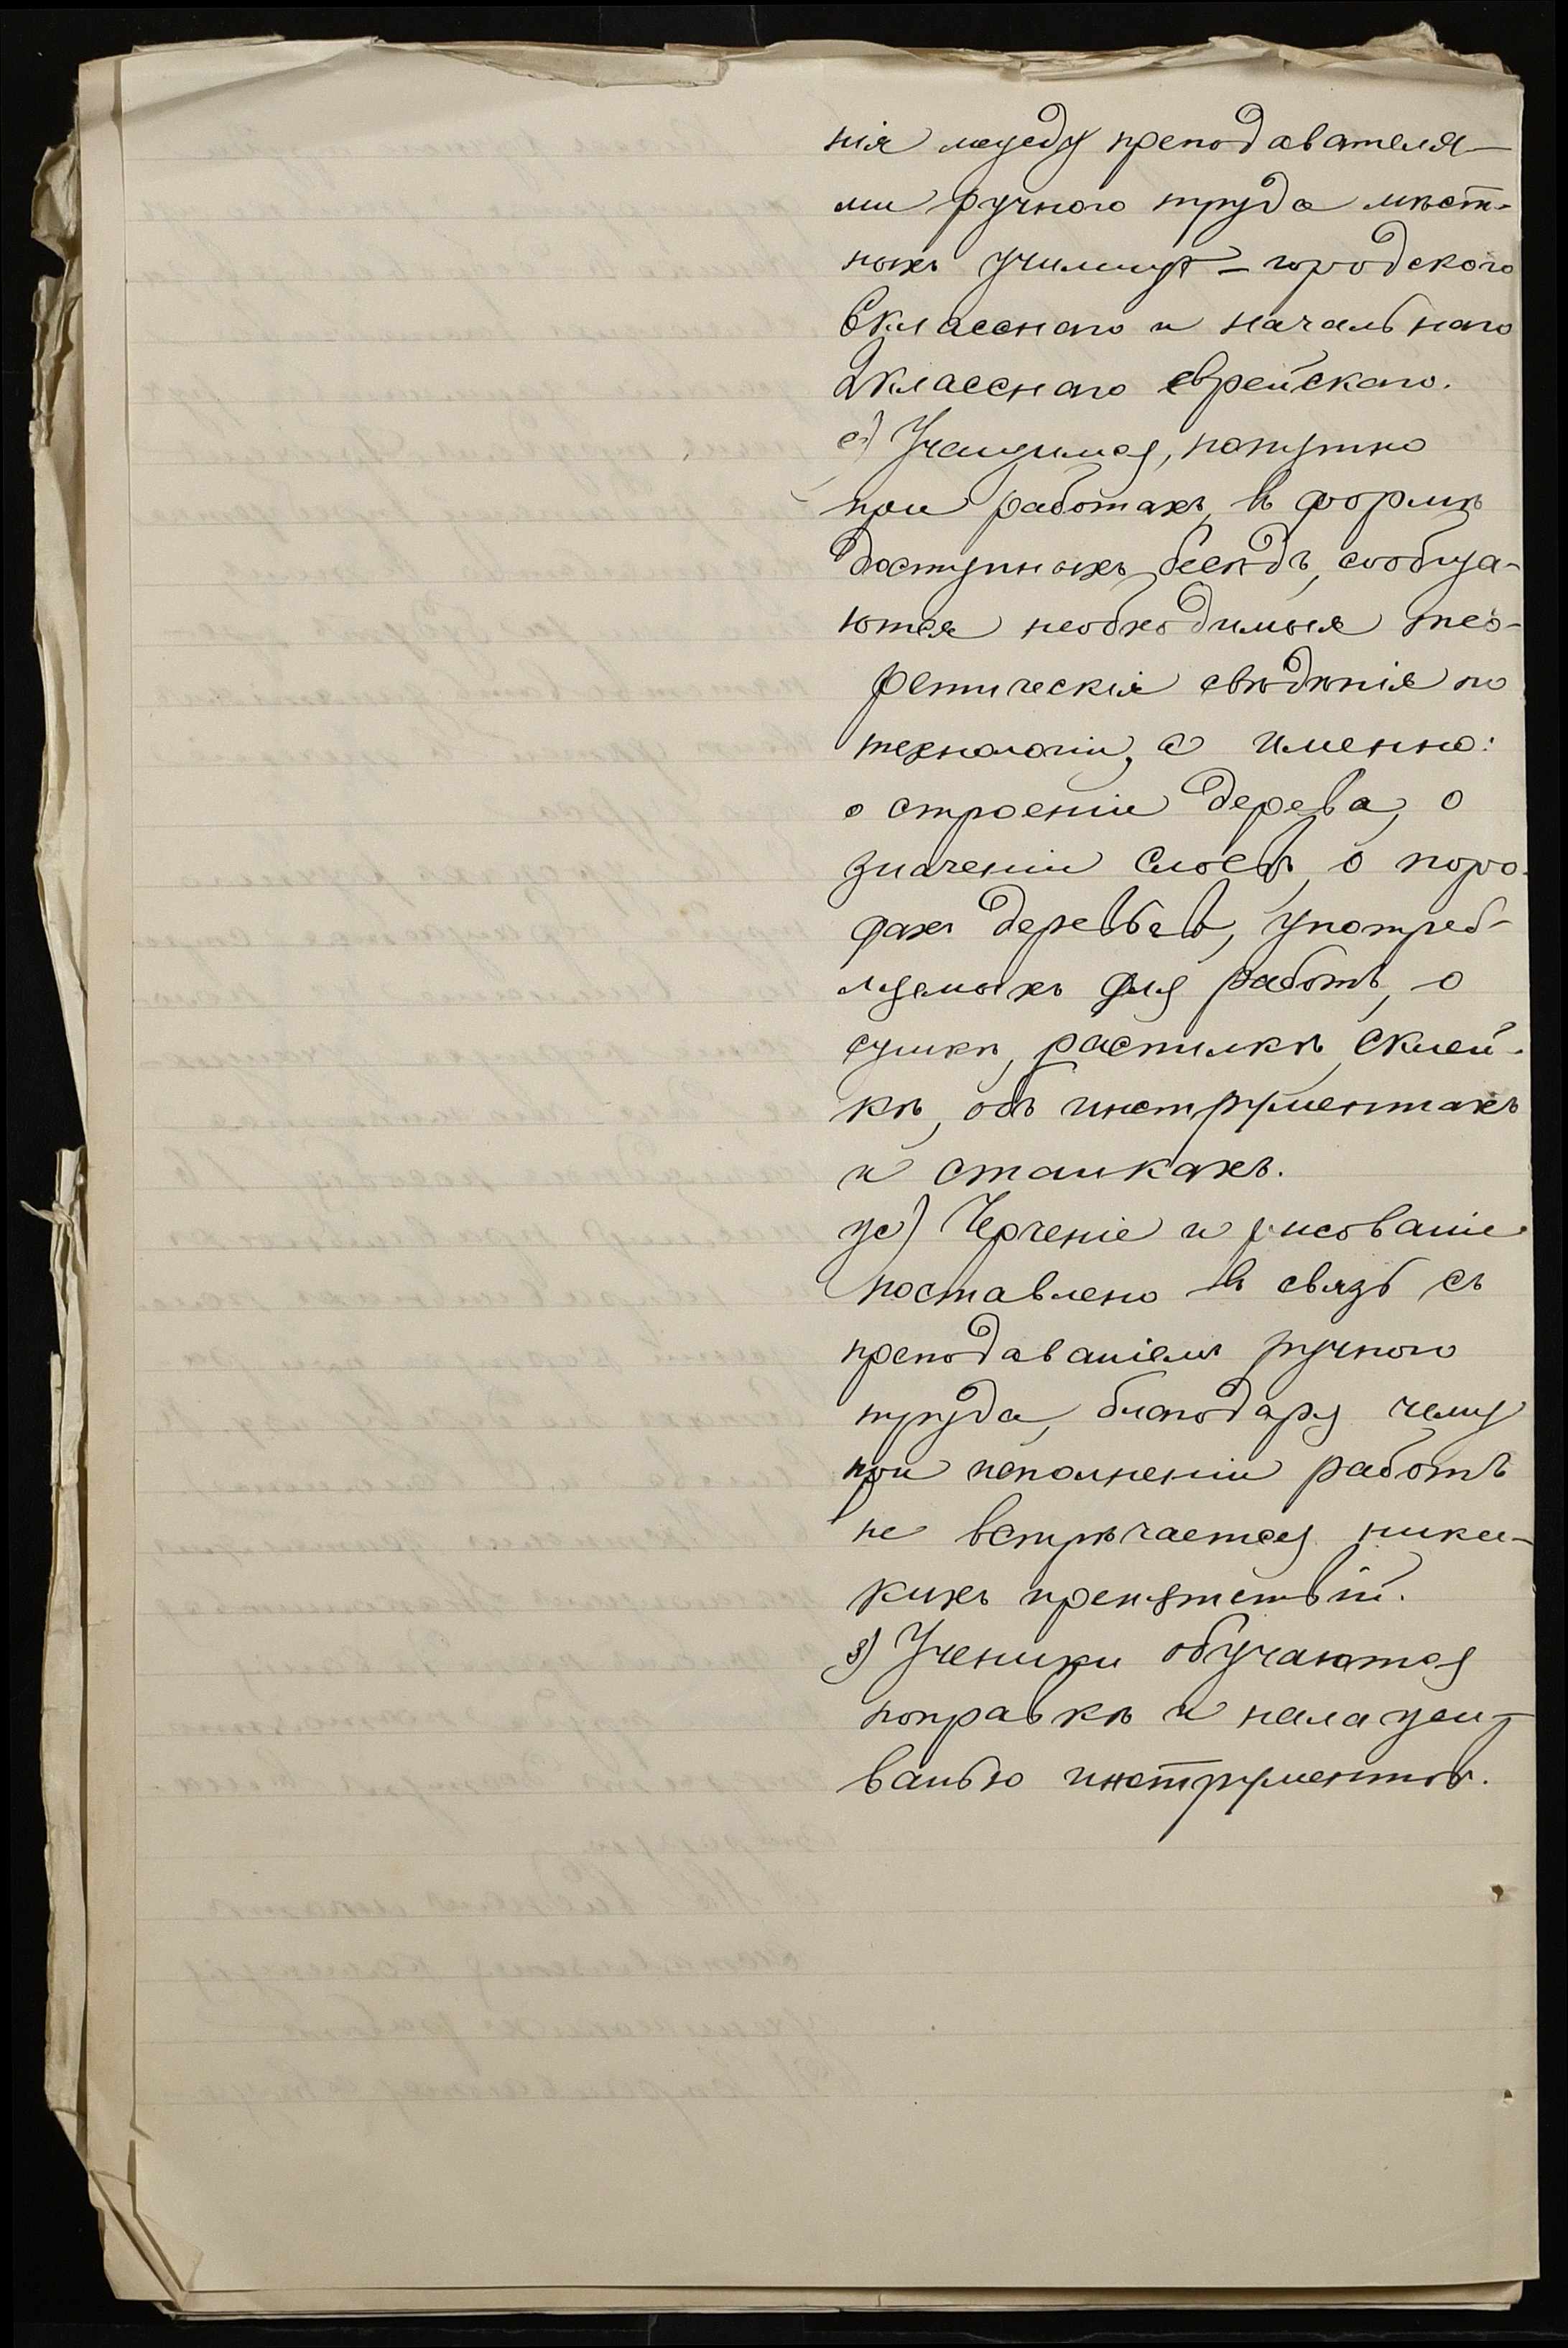 нія между преподавателя-
ми ручного труда мѣст-
ныхъ училищъ – городского
6класснаго и начальнаго
2класснаго еврейскаго.
е) Учащимся, попутно
при работахъ, въ формѣ
доступныхъ бесѣдъ, сообща-
ются необходимыя тео-
ретическія свѣдѣнія по
технологіи, а именно:
о строеніи дерева, о
значеніи слоевъ, о поро-
дахъ деревьевъ, употреб-
ляемыхъ для работъ, о
сушкѣ, распилкѣ, склей-
кѣ, объ инструментахъ
и станкахъ.
ж) Черченіе и рисованіе
поставлено въ связь съ
преподаваніемъ ручного
труда, благодаря чему
при исполненіи работъ
не встрѣчается ника-
кихъ препятствій.
з) Ученики обучаются
поправкѣ и налажи-
ванью инструментовъ.